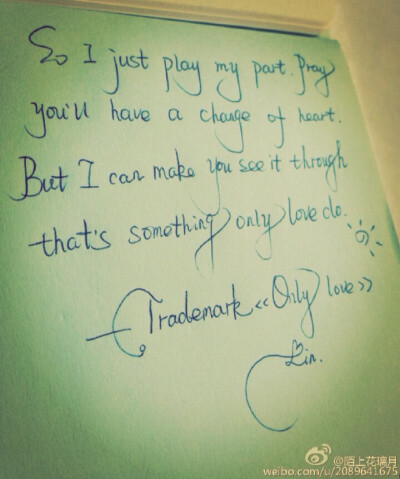 So I just play my part. Pray
you'll have a change of heart.
But I can make you see it through
that's something only love do.
—Trademark《Only love》
Lin.
@陌上花璃月
weibo.com/u/2089641675